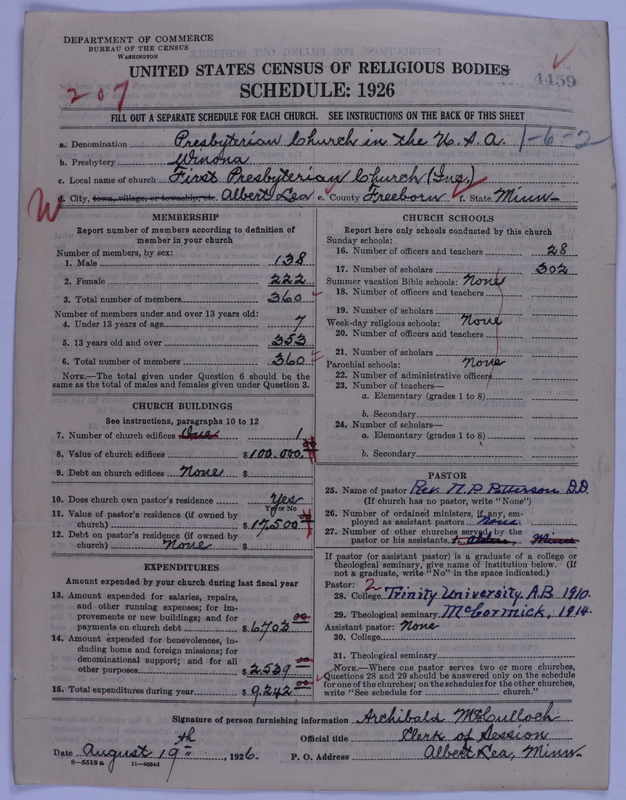 DEPARTMENT OF COMMERCE
BUREAU OF THE CENSUS
WASHINGTON
UNITED STATES CENSUS OF RELIGIOUS BODIES
4459
SCHEDULE: 1926
207
FILL OUT A SEPARATE SCHEDULE FOR EACH CHURCH. SEE INSTRUCTIONS ON THE BACK OF THIS SHEET
a. Denomination Presbyterian Church in the U.S.A. 1-6-2
b. Presbytery Winona
c. Local name of church First Presbyterian Church (Inc.)
d. City, town, village, or township, etc. Albert Lea e. County Freeborn f. State Minn
W
MEMBERSHIP
Report number of members according to definition of
member in your church
Number of members, by sex:
1. Male 138
2. Female 222
3. Total number of members 360
Number of members under and over 13 years old:
4. Under 13 years of age 7
5. 13 years old and over 353
6. Total number of members 360
NOTE.—The total given under Question 6 should be the
same as the total of males and females given under Question 3.
CHURCH BUILDINGS
See instructions, paragraphs 10 to 12
7. Number of church edifices One 1
8. Value of church edifices $100.000.00
9. Debt on church edifices None $
10. Does church own pastor's residence Yes
Yes or No
11. Value of pastor's residence (if owned by
church) $17,500
12. Debt on pastor's residence (if owned by
church) None $
EXPENDITURES
Amount expended by your church during last fiscal year
13. Amount expended for salaries, repairs,
and other running expenses; for im-
provements or new buildings; and for
payments on church debt $6703 00
14. Amount expended for benevolences, in-
cluding home and foreign missions; for
denominational support; and for all
other purposes $2539 00
15. Total expenditures during year $9,242 00
CHURCH SCHOOLS
Report here only schools conducted by this church
Sunday schools:
16. Number of officers and teachers 28
17. Number of scholars 302
Summer vacation Bible schools: None
18. Number of officers and teachers
19. Number of scholars
Week-day religious schools: None
20. Number of officers and teachers
21. Number of scholars
Parochial schools: None
22. Number of administrative officers
23. Number of teachers—
a. Elementary (grades 1 to 8)
b. Secondary
24. Number of scholars—
a. Elementary (grades 1 to 8)
b. Secondary
PASTOR
25. Name of pastor Rev. M. P. Patterson D.D.
(If church has no pastor, write "None")
26. Number of ordained ministers, if any, em-
ployed as assistant pastors None
27. Number of other churches served by the
pastor or his assistants
If pastor (or assistant pastor) is a graduate of a college or
theological seminary, give name of institution below. (If
not a graduate, write "No" in the space indicated.)
Pastor: 2
28. College Trinity University, A.B. 1910.
29. Theological seminary McCormick, 1914.
Assistant pastor: None
30. College
31. Theological seminary
NOTE.—Where one pastor serves two or more churches,
Questions 28 and 29 should be answered only on the schedule
for one of the churches; on the schedules for the other churches,
write "See schedule for church."
Signature of person furnishing information Archibald McCulloch
Official title Clerk of Session
Date August 19th, 1926. P. O. Address Albert Lea, Minn
8-5518 a